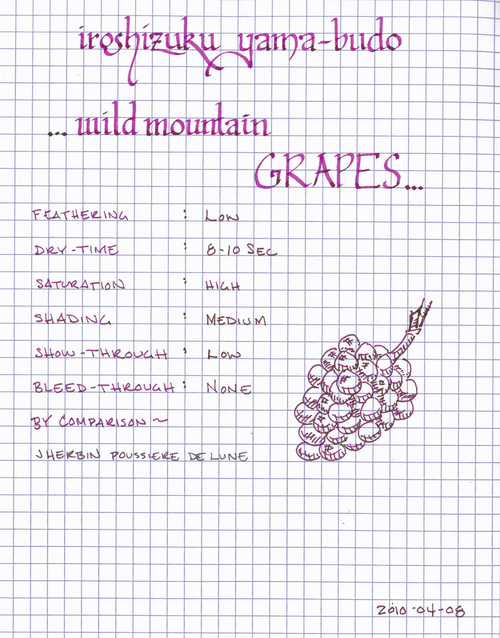 iroshizuku yama-budo
... wild mountain
GRAPES...
FEATHERING : LOW
DRY-TIME : 8-10 SEC
SATURATION : HIGH
SHADING : MEDIUM
SHOW-THROUGH : LOW
BLEED-THROUGH : NONE
BY COMPARISON ~
JHERBIN POUSSIERE DE LUNE
2010-04-08